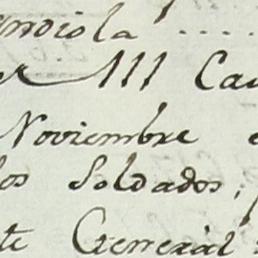 ndiola ....
III Ca
Noviembre
los Soldados,
te General